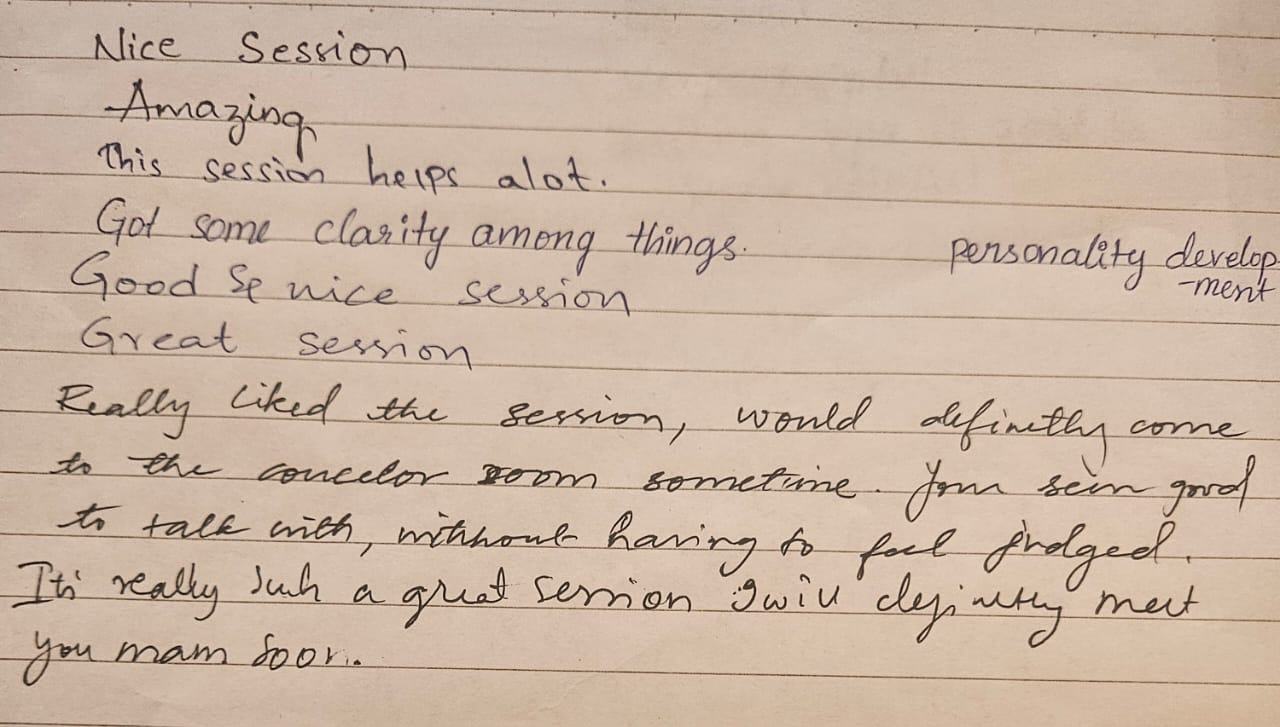 Nice Session
Amazing
This session helps alot.
Got some clarity among things.
personality develop
-ment
Good Se nice session
Great session
Really liked the session, would definetly come
to the councelor room sometime. You seem good
to talk with, without having to feel judged.
It's really such a great session I will definetly meet
you mam soon.